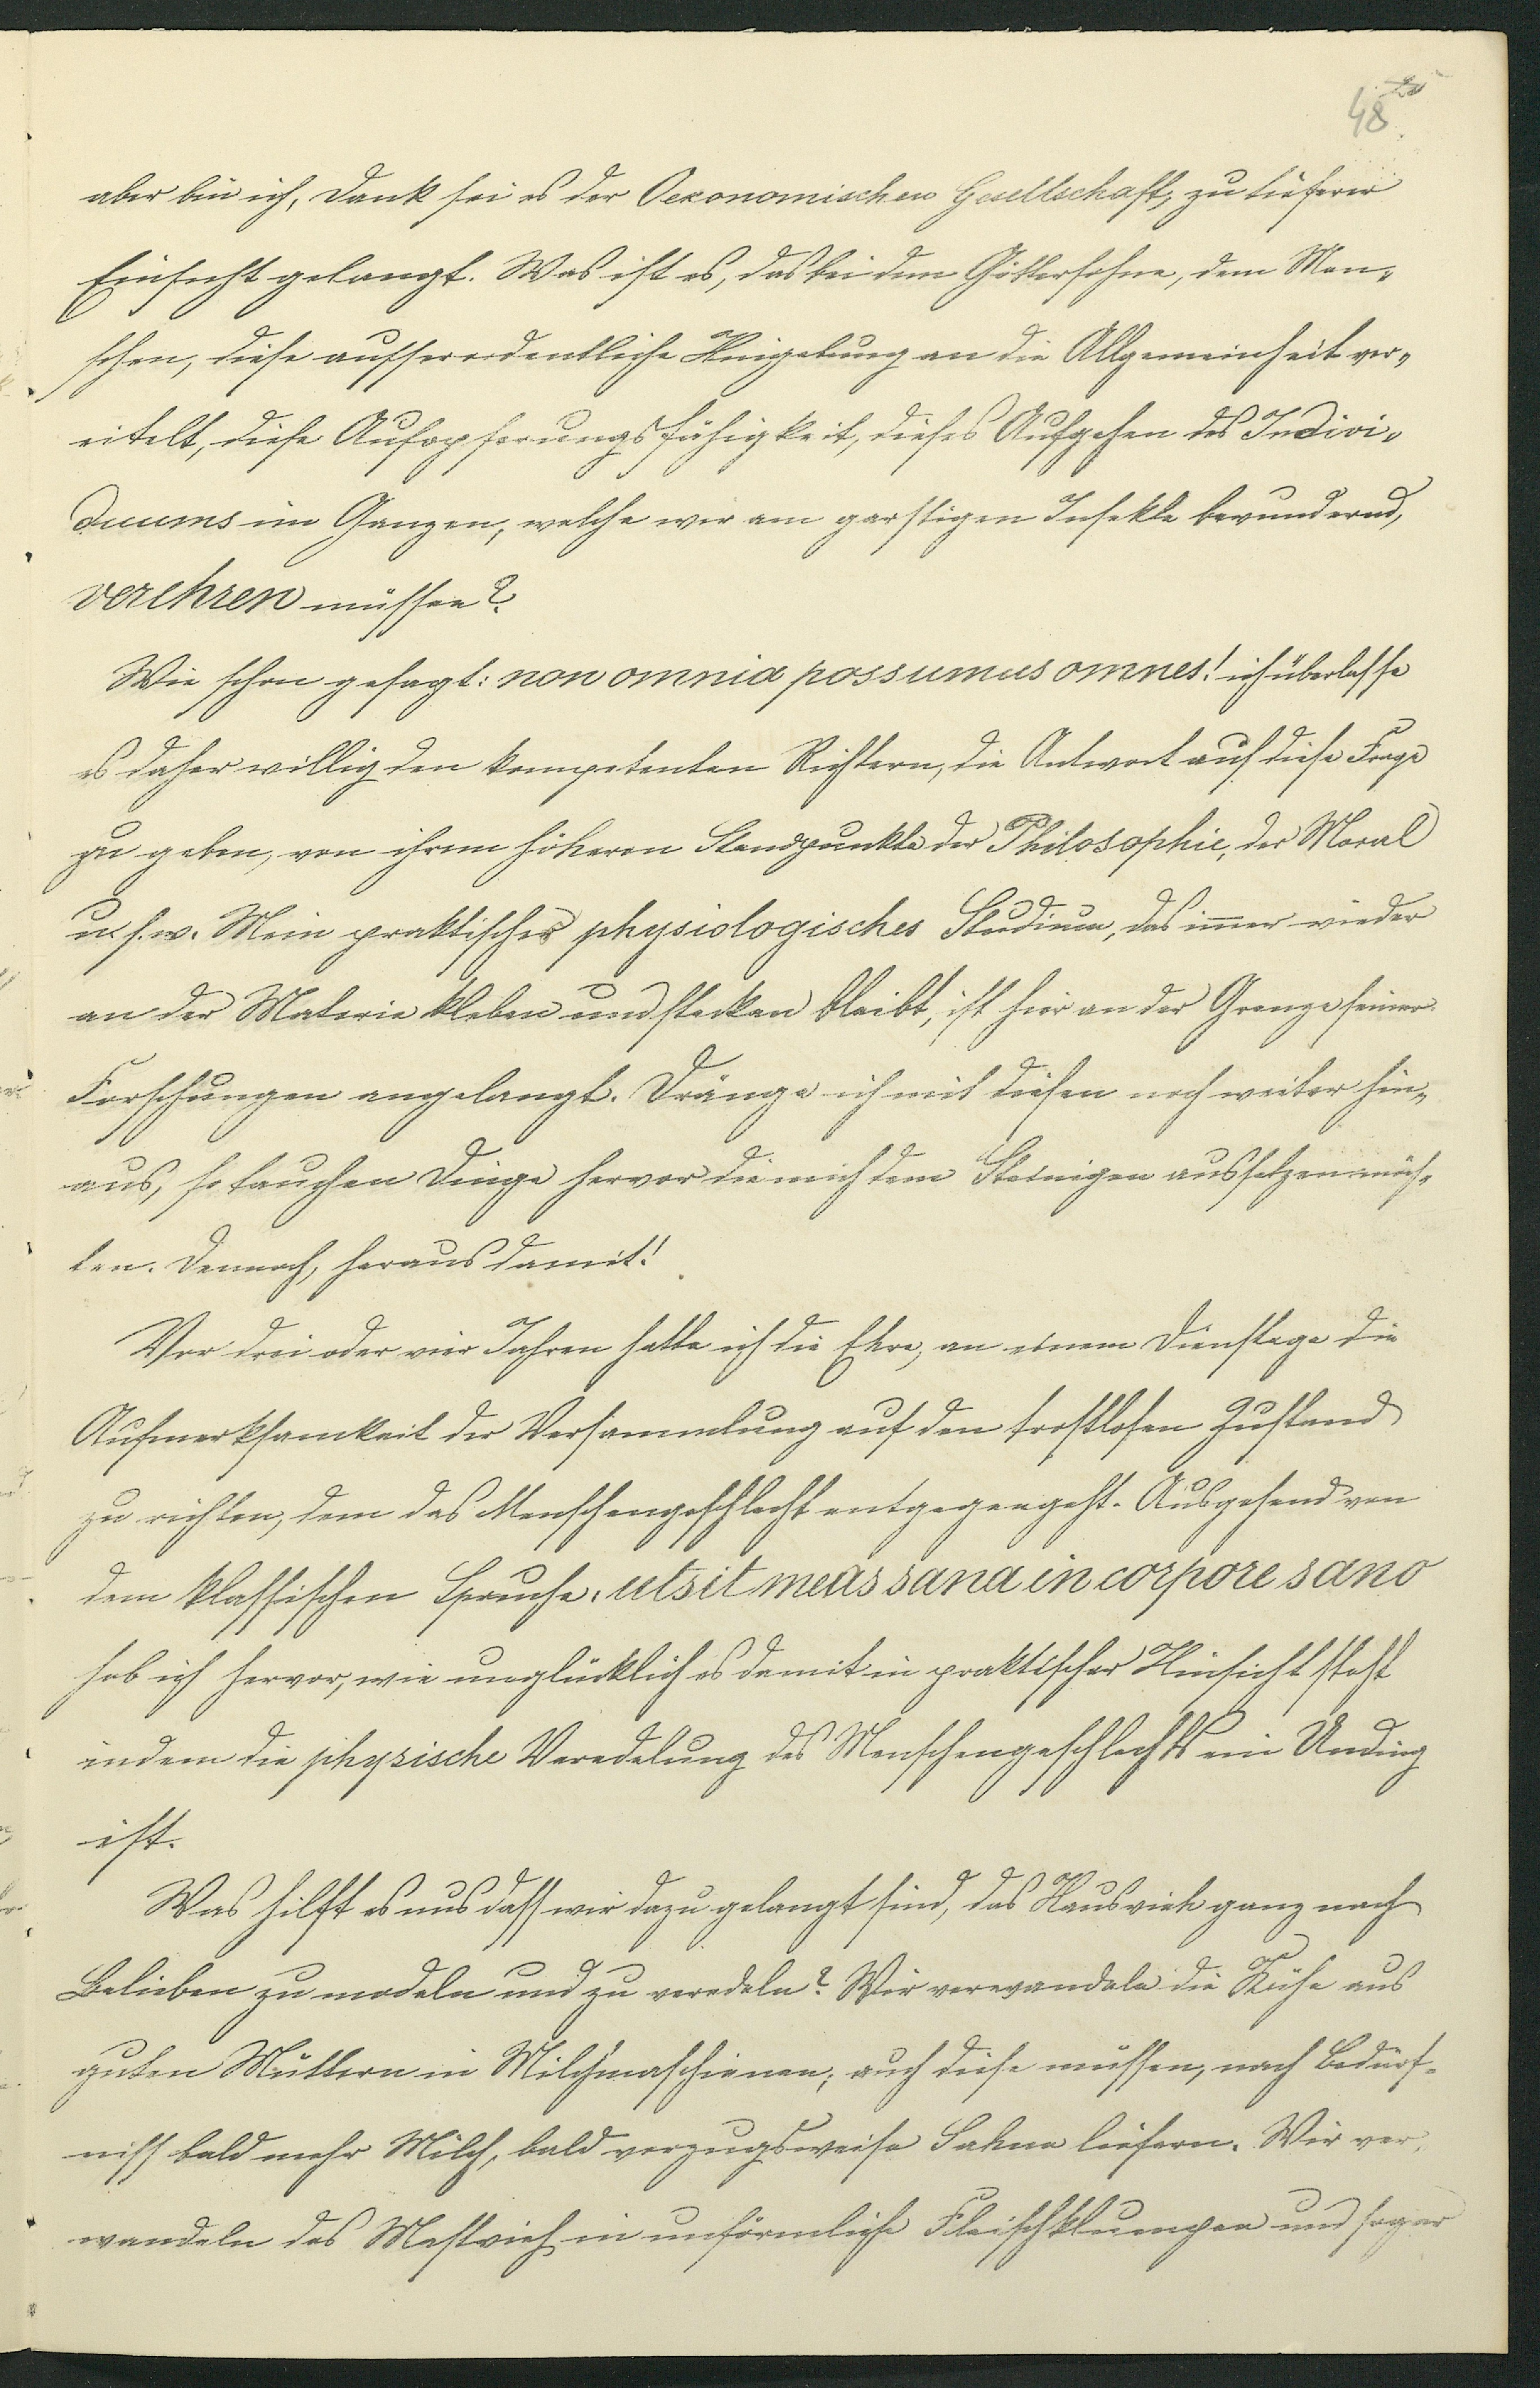 48
aber bin ich, Dank sei es der Oekonomischen Gesellschaft, zu tieferer
Einsicht gelangt. Was ist es, das bei dem Göttersohne, dem Men-
schen, diese aufserordentliche Hingebung an die Allgemeinheit ver-
eitelt, diese Aufopferungsfähigkeit, dieses Aufgehen des Indivi-
duums im Ganzen, welche wir am garstigen Insekte bewundernd,
verehren müssen?
Wie schon gesagt: non omnia possumus omnes! ich überlasse
es daher willig den kompetenten Richtern, die Antwort auf diese Frage
zu geben, von ihrem höheren Standpunkte der Philosophie, der Moral
u. s. w. Mein praktisches physiologisches Studium, das immer wieder
an der Materie kleben und stecken bleibt, ist hier an der Grenze seiner
Forschungen angelangt. Dränge ich mit diesen noch weiter hin-
aus, so tauchen Dinge hervor die mich dem Steinigen aussetzen möch-
ten. Dennoch, heraus damit!
Vor drei oder vier Jahren hatte ich die Ehre, an einem Dienstage die
Aufmerksamkeit der Versammlung auf den trostlosen Zustand
zu richten, dem das Menschengeschlecht entgegengeht. Ausgehend von
dem klassischen Spruche: ut sit mens sana in corpore sano
hob ich hervor, wie unglücklich es damit in praktischer Hinsicht steht
indem die physische Veredelung des Menschengeschlechts ein Unding
ist.
Was hilft es uns dass wir dazu gelangt sind, das Hausvieh ganz nach
Belieben zu modeln und zu veredeln? Wir verwandeln die Kühe aus
guten Müttern in Milchmaschienen; auch diese müssen, nach Bedürf-
niss bald mehr Milch, bald vorzugsweise Sahne liefern. Wir ver-
wandeln das Mastvieh in unförmliche Fleischklumpen und sogar